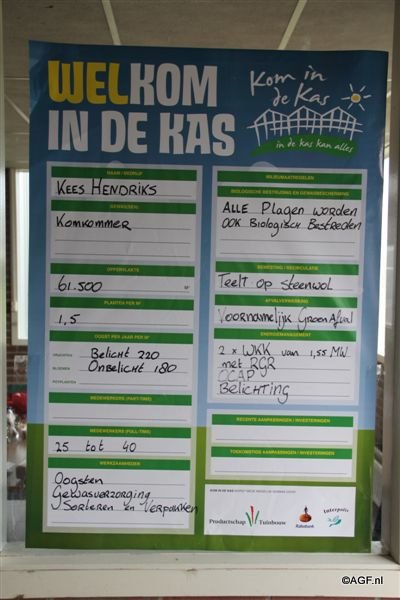 WELKOM
IN DE KAS
Kom in
de Kas
in de kas kan alles
NAAM / BEDRIJF
KEES HENDRIKS
GEWAS(SEN)
KOMKOMMER
OPPERVLAKTE
61.500 M²
PLANTEN PER M²
1,5
OOGST PER JAAR PER M²
VRUCHTEN Belicht 220
BLOEMEN Onbelicht 180
POTPLANTEN
MEDEWERKERS (PART-TIME)
MEDEWERKERS (FULL-TIME)
25 tot 40
WERKZAAMHEDEN
Oogsten
Gewasverzorging
Sorteren en Verpakken
MILIEUMAATREGELEN
BIOLOGISCHE BESTRIJDING EN GEWASBESCHERMING
ALLE Plagen worden
OOK Biologisch Bestreden
BEMESTING / RECIRCULATIE
Teelt op Steenwol
AFVALVERWERKING
Voornamelijk Groen Afval
ENERGIEMANAGEMENT
2 x WKK van 1,55 MW
met RGR
OCAP
Belichting
RECENTE AANPASSINGEN / INVESTERINGEN
TOEKOMSTIGE AANPASSINGEN / INVESTERINGEN
KOM IN DE KAS WORDT MEDE MOGELIJK GEMAAKT DOOR:
Productschap Tuinbouw
Rabobank
Interpolis
©AGF.nl